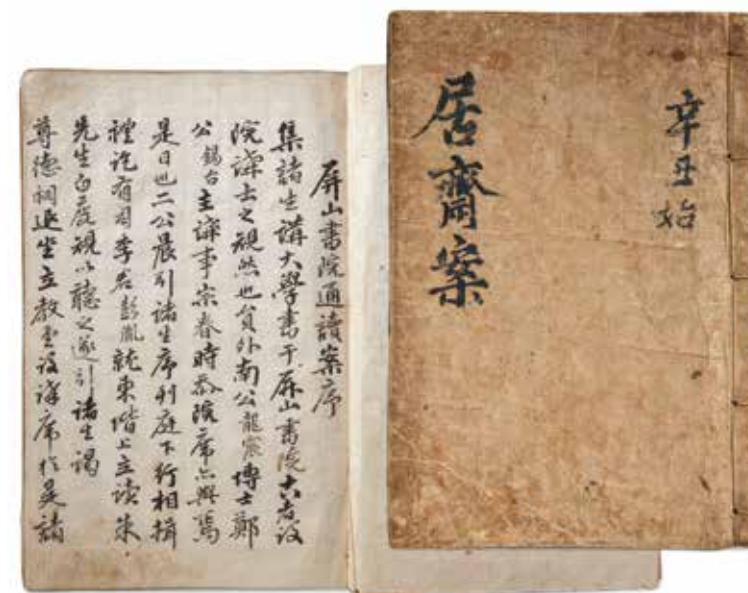 辛丑始
居齋案
屏山書院通讀案序
集諸生講大學書于屏山書院古者設
院課士之規然也員外南公龍震博士鄭
公錫台主講事宗春時忝院席亦與焉
是日也二公晨引諸生序列庭下行相揖
禮訖有司李君彭胤就東階上立讀朱
先生白鹿規以聽之遂引諸生謁
尊德祠退坐立教堂設講席於是諸